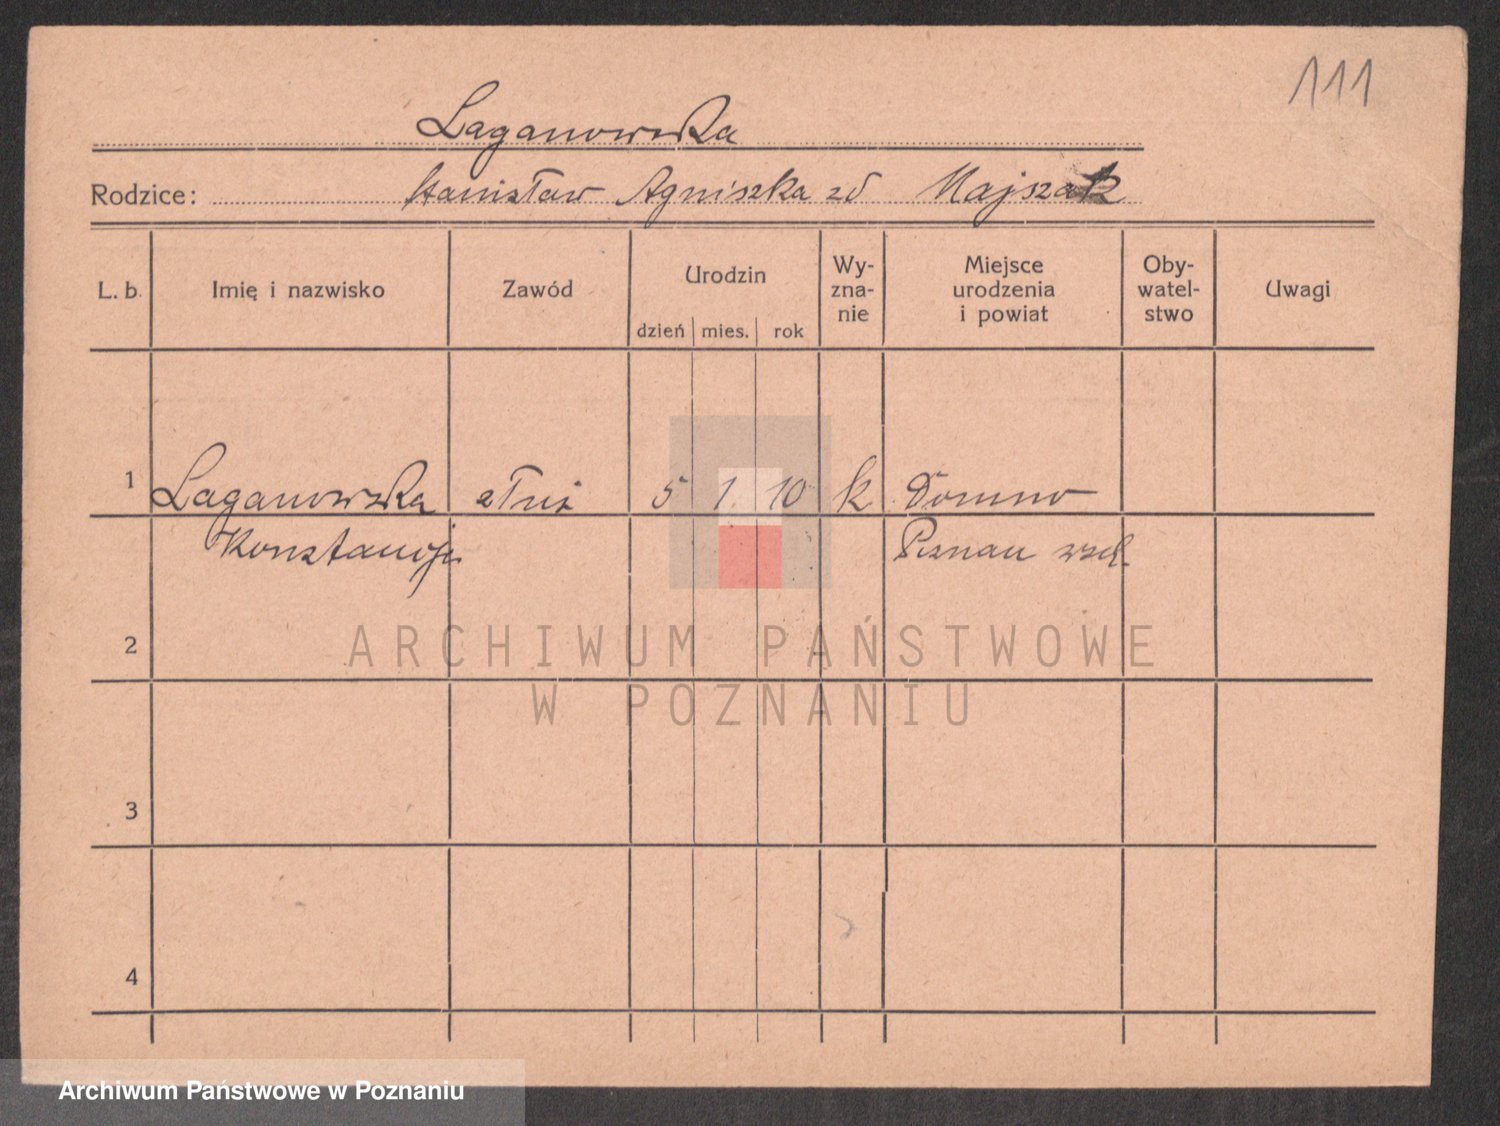 111
Laganowska
Rodzice: Stanisław Agniszka zd Majszak
L. b. Imię i nazwisko Zawód Urodzin dzień mies. rok Wy-zna-nie Miejsce urodzenia i powiat Oby-watel-stwo Uwagi
1 Laganowska 5 1. 10 k
Konstancja Poznań wsch.
2
3
4
ARCHIWUM PAŃSTWOWE
W POZNANIU
Archiwum Państwowe w Poznaniu